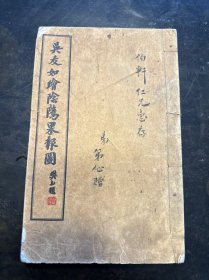 吳友如繪陰隲果報圖
伯軒仁兄惠存
弟
贈